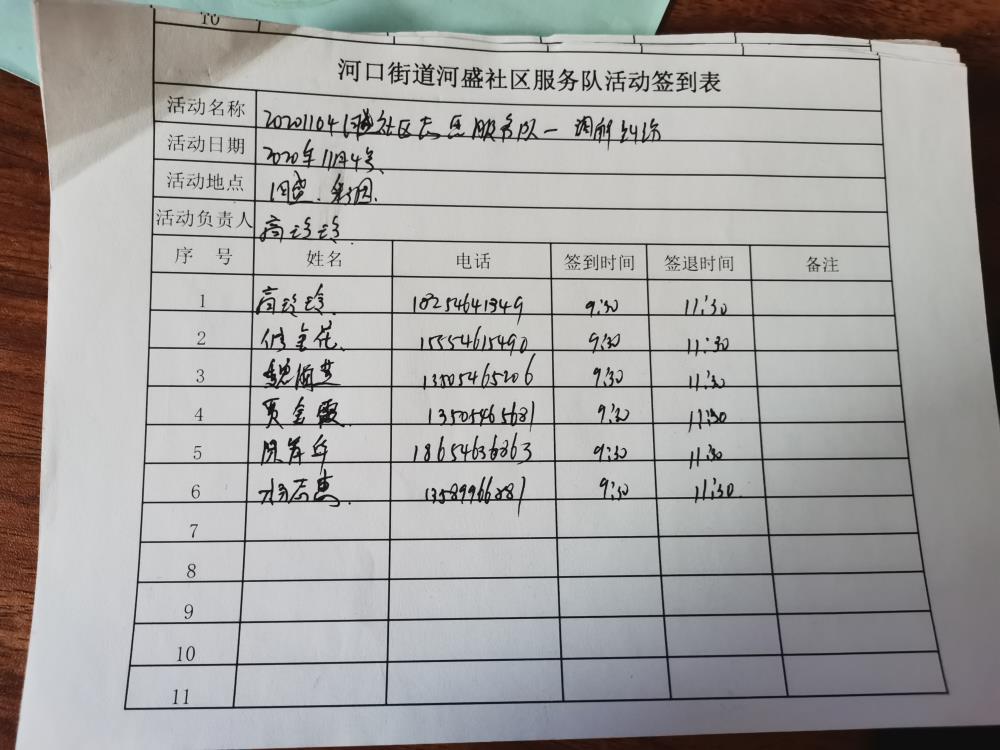 10
河口街道河盛社区服务队活动签到表
活动名称 20201104河盛社区志愿服务队一调解纠纷
活动日期 2020年11月4号
活动地点 河盛.
活动负责人 高玲玲
序 号 姓名 电话 签到时间 签退时间 备注
1 高玲玲 18254641349 9:30 11:30
2 15554615490 9:30 11:30
3 13505465206 9:30 11:30
4 贾金霞 13505465681 9:30 11:30
5 18654636863 9:30 11:30
6 13589966881 9:30 11:30
7
8
9
10
11